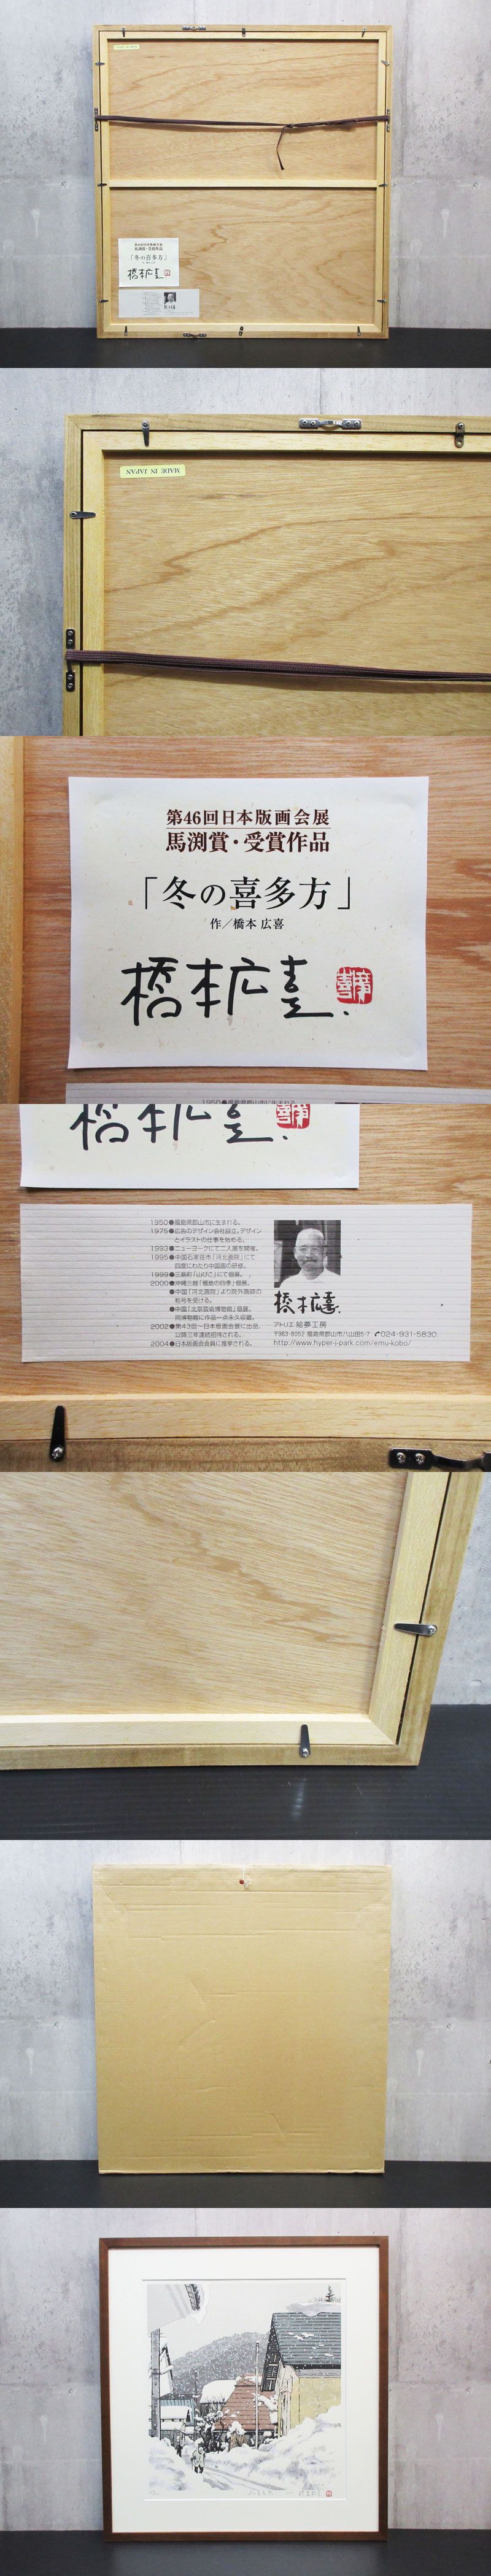 MADE IN JAPAN
第46回日本版画会展
馬渕賞・受賞作品
「冬の喜多方」
作／橋本 広喜
橋本広喜
1950●福島県郡山市に生まれる。
1975●広告のデザイン会社設立。デザイン
とイラストの仕事を始める。
1993●ニューヨークにて二人展を開催。
1995●中国石家荘市「河北画院」にて
四度にわたり中国画の研修。
1999●三島町「山びこ」にて個展。
2000●沖縄三越「福島の四季」個展。
●中国「河北画院」より院外画師の
称号を受ける。
●中国「北京芸術博物館」個展。
同博物館に作品一点永久収蔵。
2002●第43回〜日本版画会展に出品、
以降三年連続招待される。
2004●日本版画会会員に推挙される。
橋本広喜
アトリエ 絵夢工房
〒963-8052 福島県郡山市八山田5-7 ✆024-931-5830
http://www.hyper-j-park.com/emu-kobo/